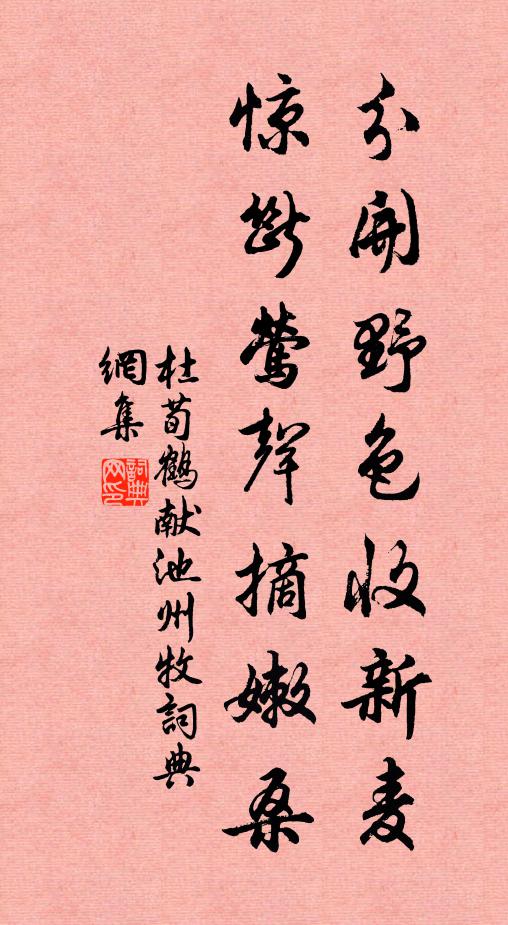 分開野色收新麦
惊斷鶯聲摘嫩桑
杜荀鶴献池州牧詞典
網集
詞典网印